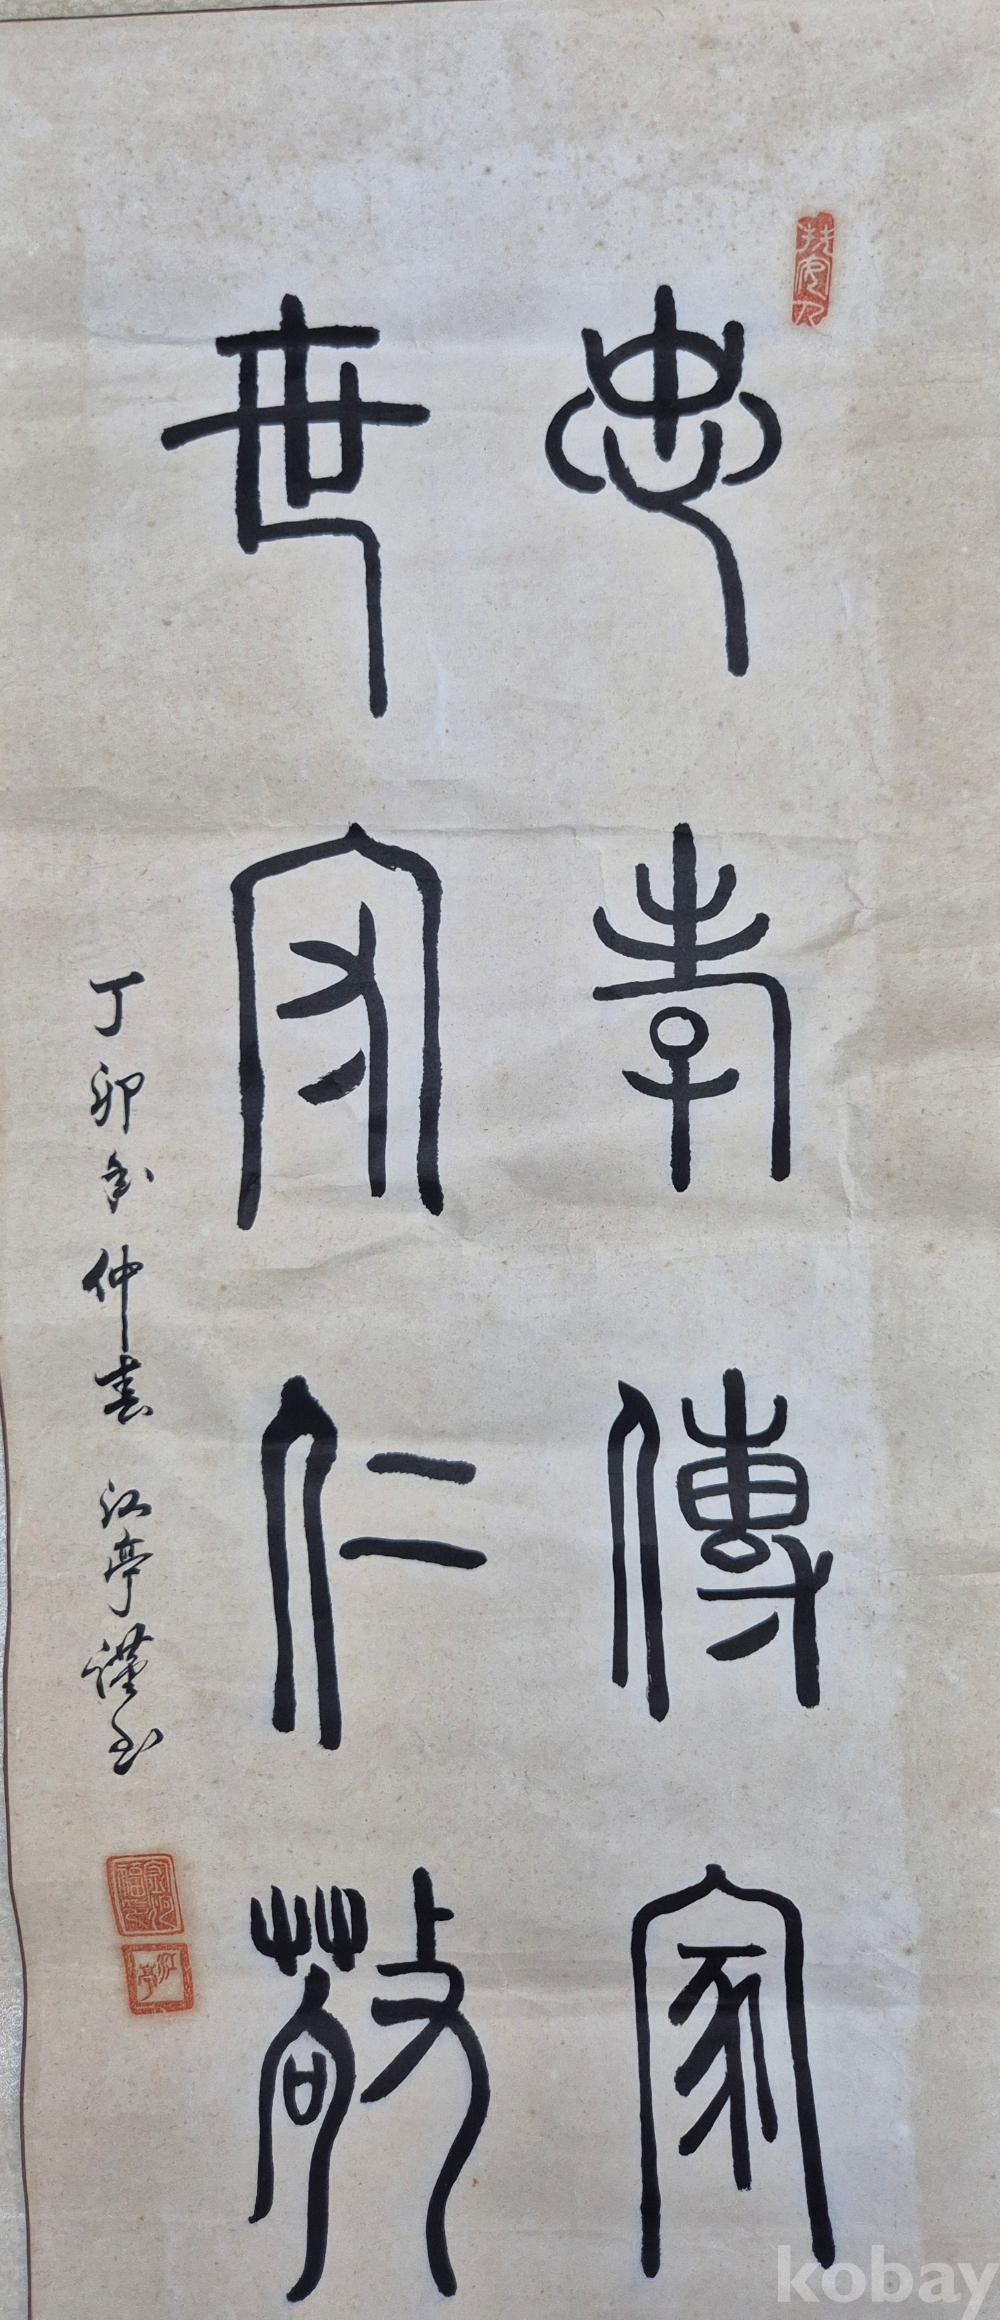 忠孝傳家
世守仁敬
丁卯年仲春 江亭謹書
江亭
kobay